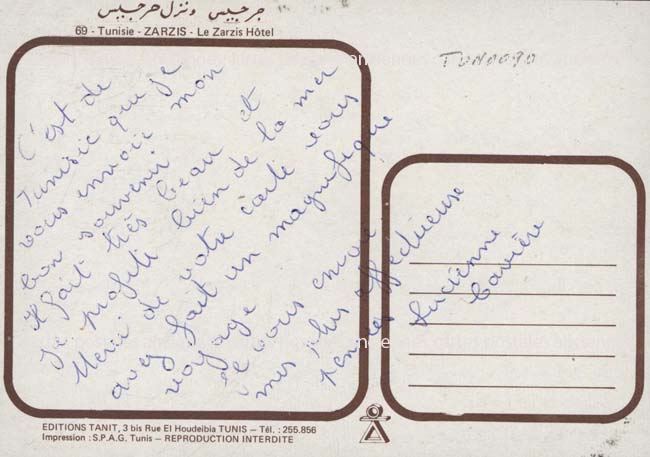 جرجيس ونزل جرجيس
69 - Tunisie - ZARZIS - Le Zarzis Hôtel
TUN00090
C'est de
Tunisie que je
vous envoie mon
bon souvenir
Il fait très beau et
Je profite bien de la mer
Merci de votre carte vous
avez fait un magnifique
voyage
Je vous envoie
mes plus affectueuse
pensées Lucienne
Bavière
EDITIONS TANIT, 3 bis Rue El Houdeibia TUNIS — Tél. : 255.856
Impression : S.P.A.G. Tunis — REPRODUCTION INTERDITE